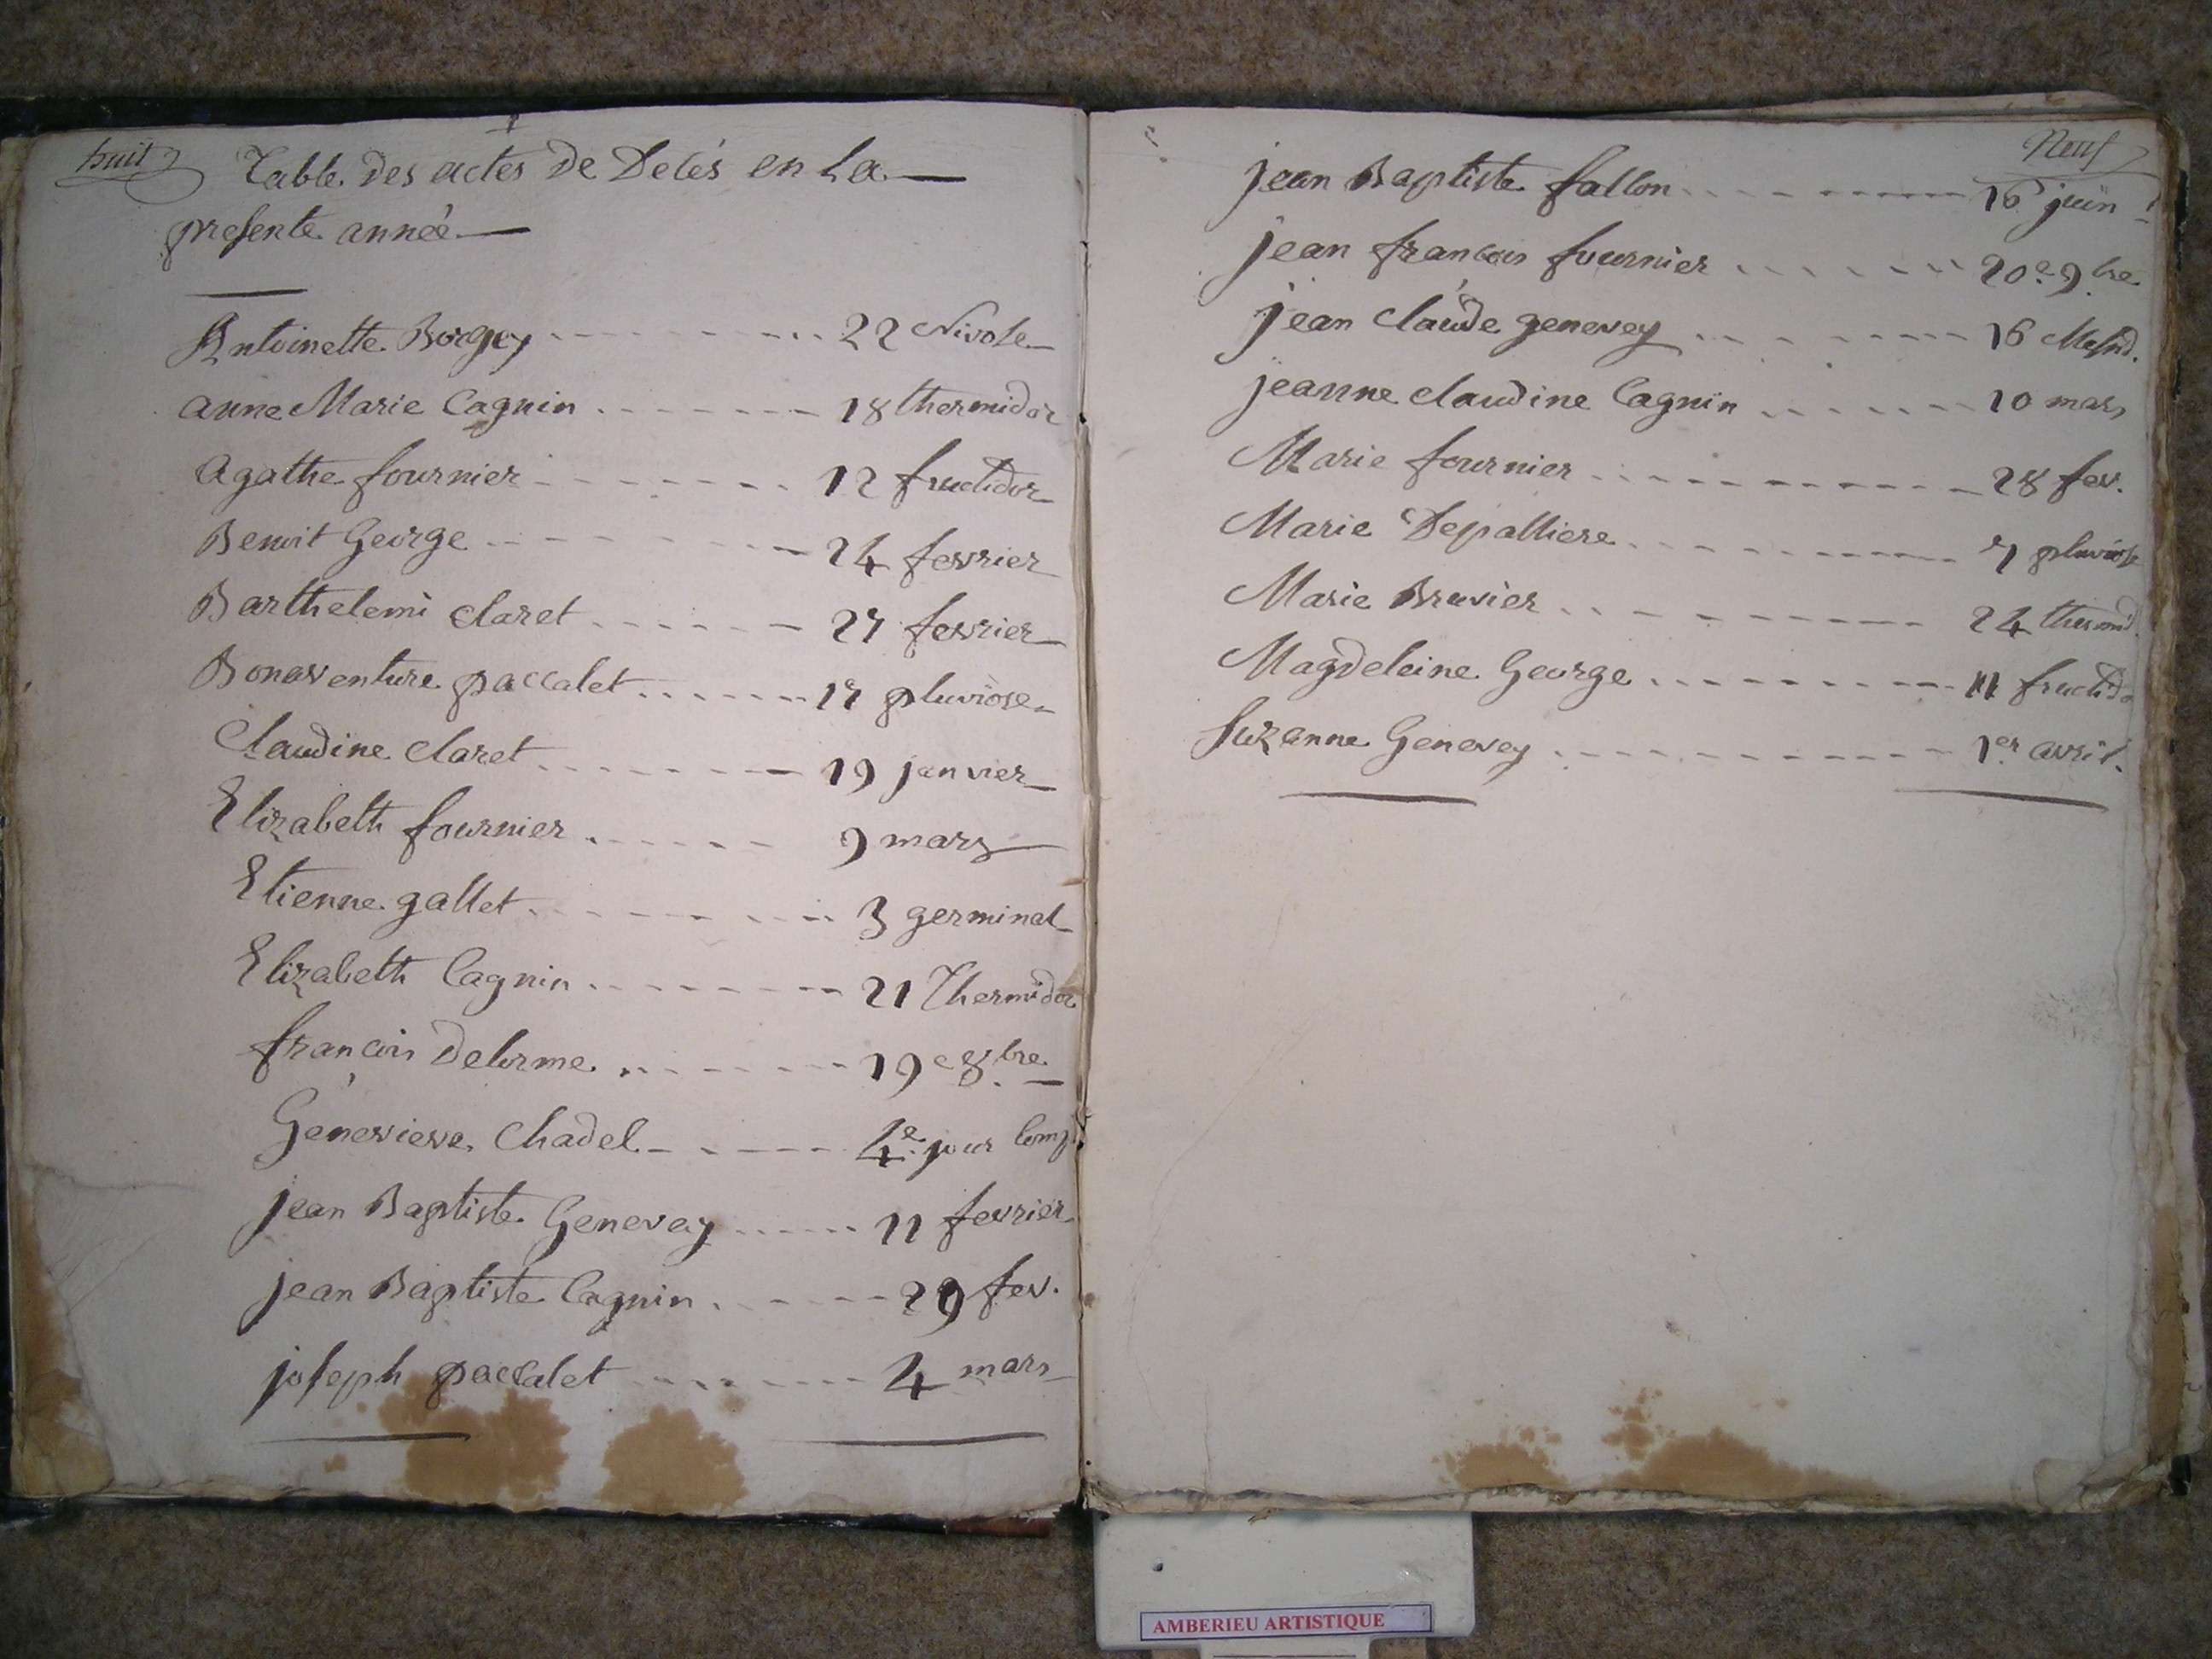 huit
Table des actes de Decés en La
presente année
Antoinette Borgey 22 Nivose
anne Marie Cagnin 18 thermidor
Agathe fournier 12 fructidor
Benoit George 24 fevrier
Barthelemi Claret 27 fevrier
Bonaventure paccalet 17 pluviose
Claudine Claret 19 janvier
Elizabeth fournier 9 mars
Etienne gallet 3 germinal
Elizabeth Cagnin 21 Thermidor
francois Delorme 19e 8bre
Genevieve Chadel 4e jour Comp
jean Baptiste Genevay 11 fevrier
jean Baptiste Cagnin 29 fev.
joseph paccalet 4 mars
Neuf
jean Baptiste fallon 16 juin
jean francois fournier 20e 9bre
jean Claude genevey 16 Messid.
jeanne Claudine Cagnin 10 mars
Marie fournier 28 fev.
Marie Depalliere 7 pluviose
Marie Bruvier 24 thermid.
Magdeleine George 11 fructido
Suzanne Genevey 1er avril.
AMBERIEU ARTISTIQUE